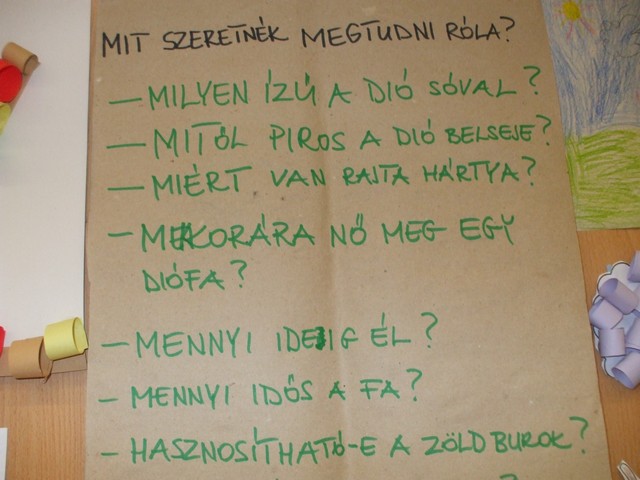 MIT SZERETNÉK MEGTUDNI RÓLA?
– MILYEN ÍZŰ A DIÓ SÓVAL?
– MITŐL PIROS A DIÓ BELSEJE?
– MIÉRT VAN RAJTA HÁRTYA?
– MEKORÁRA NŐ MEG EGY
DIÓFA?
– MENNYI IDEIG ÉL?
– MENNYI IDŐS A FA?
– HASZNOSÍTHATÓ-E A ZÖLD BUROK?